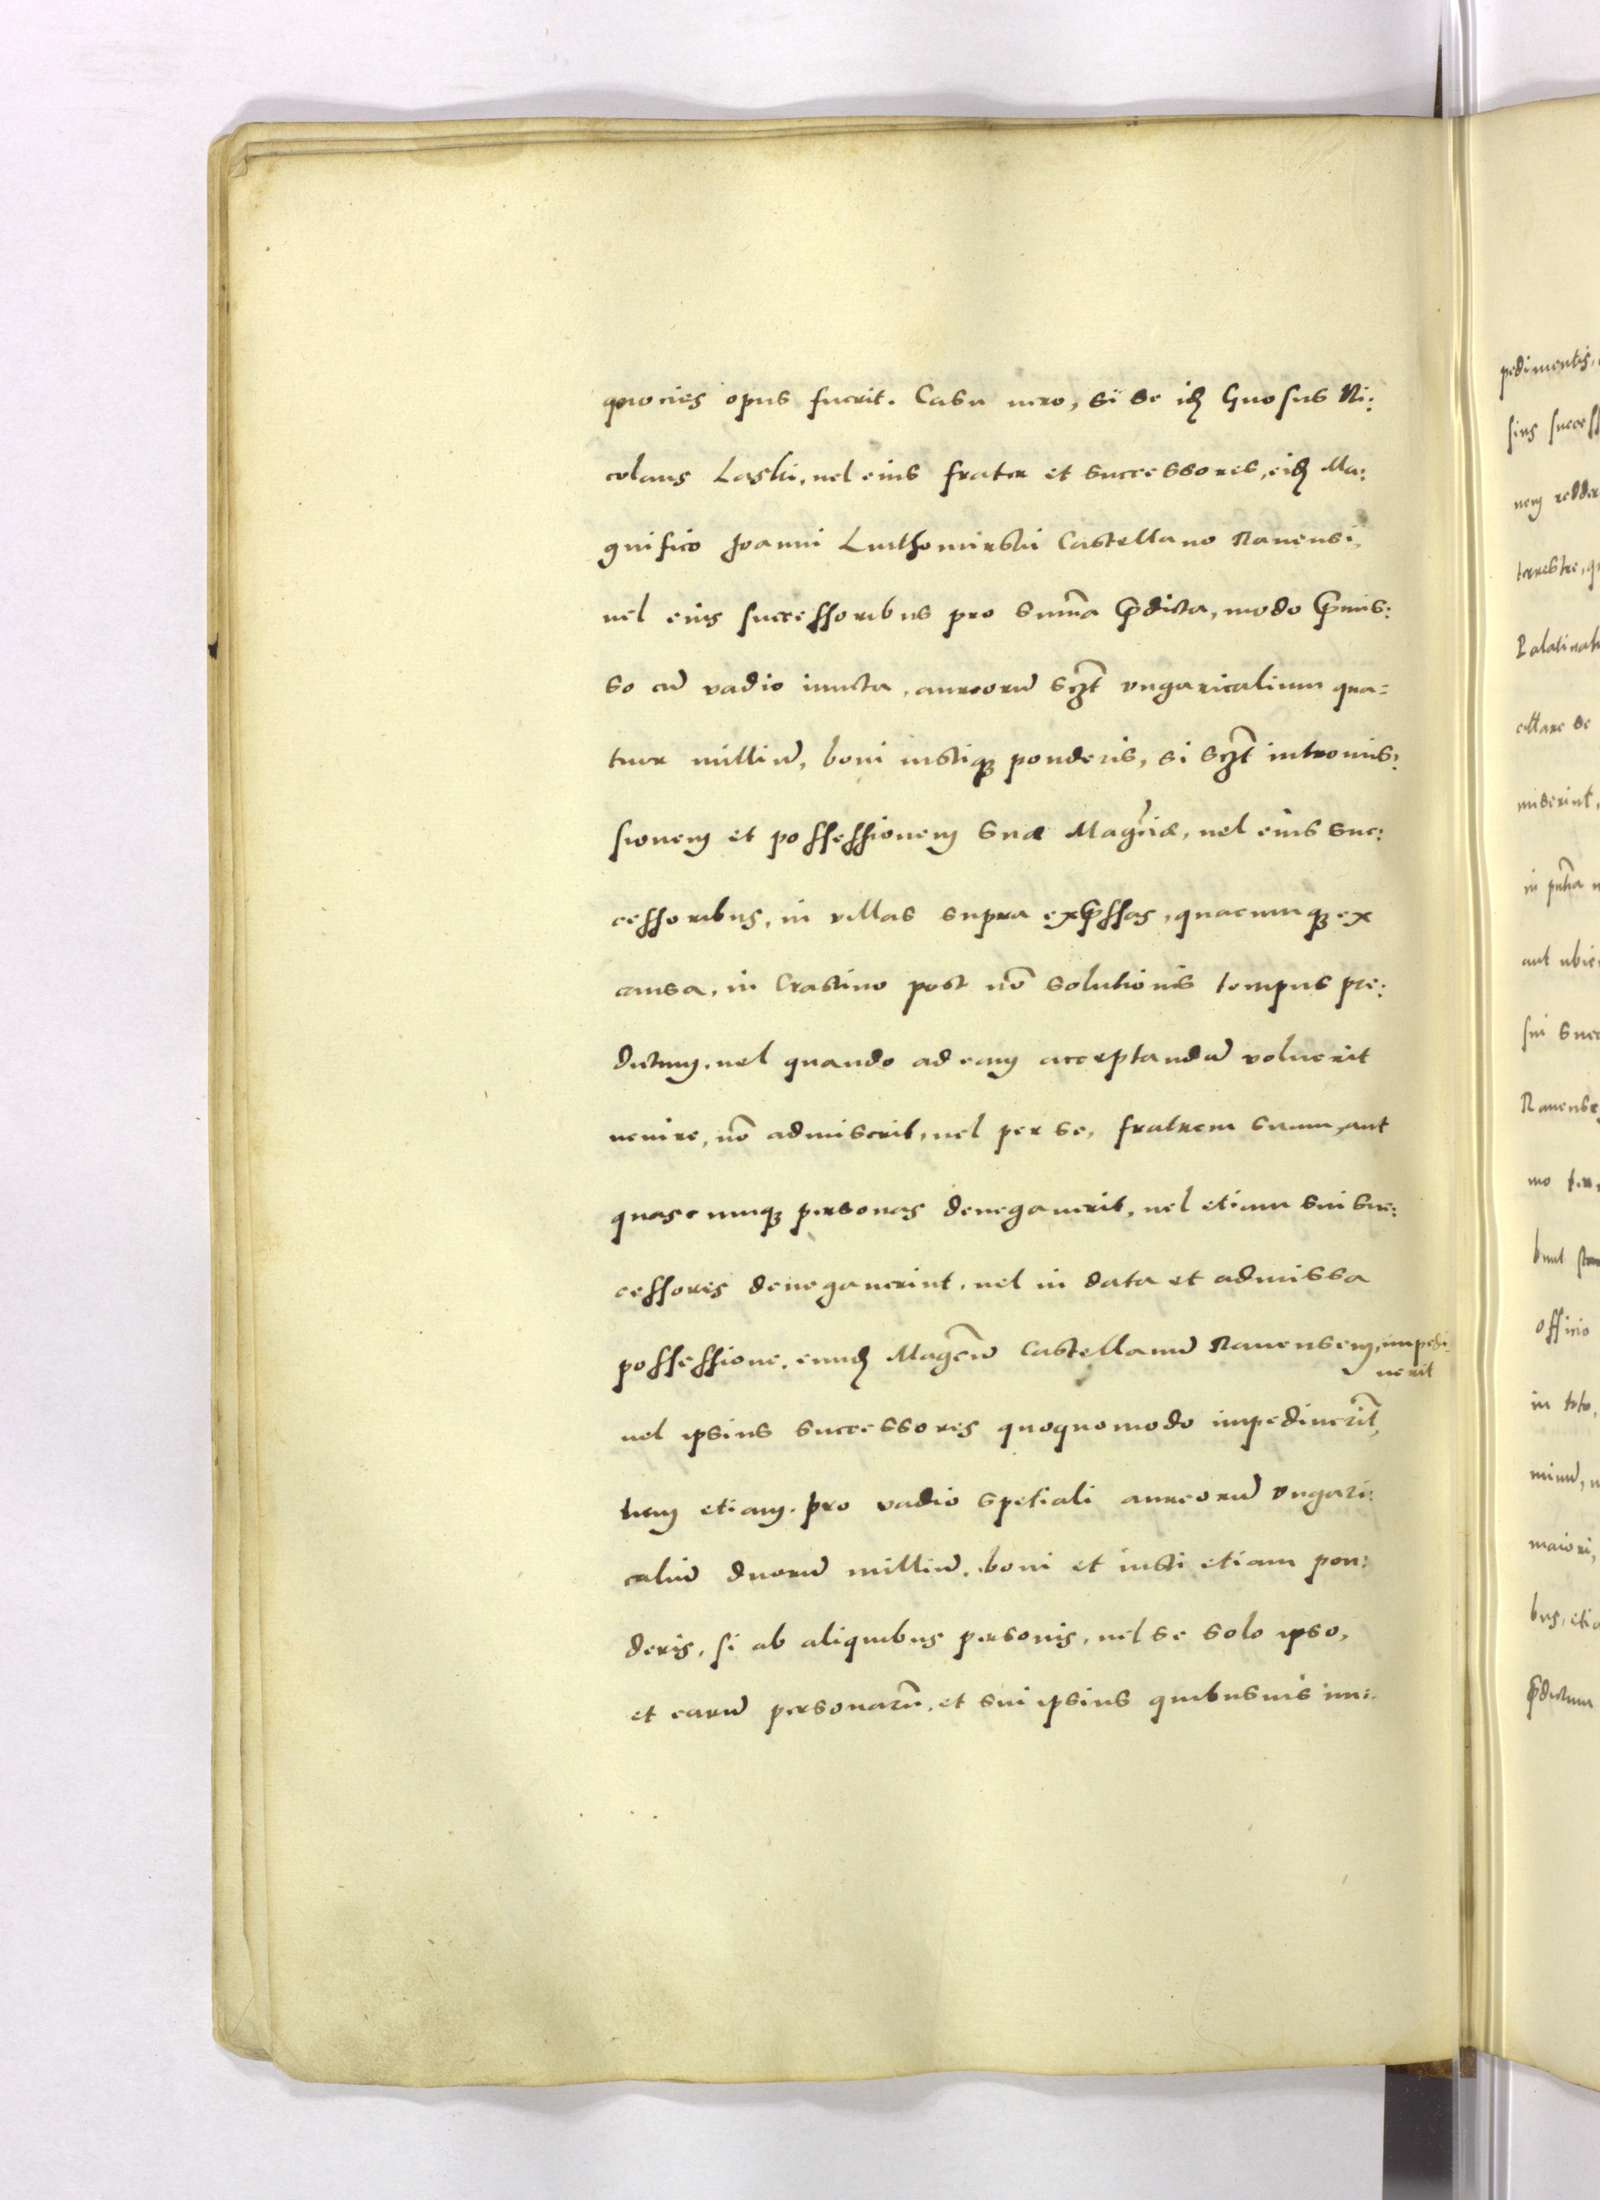 quocies opus fuerit. Casu uero, si se idẽ Gnosus Ni:
colaus Laski, uel eius frater et successores, eidẽ Ma:
gnifico Joanni Luthomirski Castellano Rauensi,
uel eius successoribus pro sum̃a p̃dicta, modo p̃mis:
so cũ vadio iuncta, aureorũ sczt̃ vngaricalium qua=
tuor milliũ, boni iustiq₃ ponderis, si sczt̃ intromis:
sionem et possessionem suæ Magn̄iæ, uel eius suc:
cessoribus, in villas supra exp̃ssas, quacumq₃ ex
causa, in Crastino post nõ solutionis tempus pre:
dictum, uel quando ad eam acceptandũ voluerit
uenire, nõ admiserit, uel per se, fratrem suum, aut
quascumq₃ personas denegauerit, uel etiam sui suc:
cessores denegauerint, uel in data et admissa
possessione, eundẽ Magcũ Castellanũ Rauensem, impedi:
uerit
uel ipsius successores quoquomodo impediuerĩt,
tum etiam pro vadio spetiali aureorũ vngari:
caliũ duorũ milliũ, boni et iusti etiam pon:
deris, si ab aliquibus personis, uel se solo ipso,
et earũ personarũ, et sui ipsius quibusuis im:
pedimentis,
nem redder
terrestre, q
Palatinat
miserint,
aut ubic
sui succ
Rauense
officio
in toto,
maiori,
bus, etia
p̃dictum